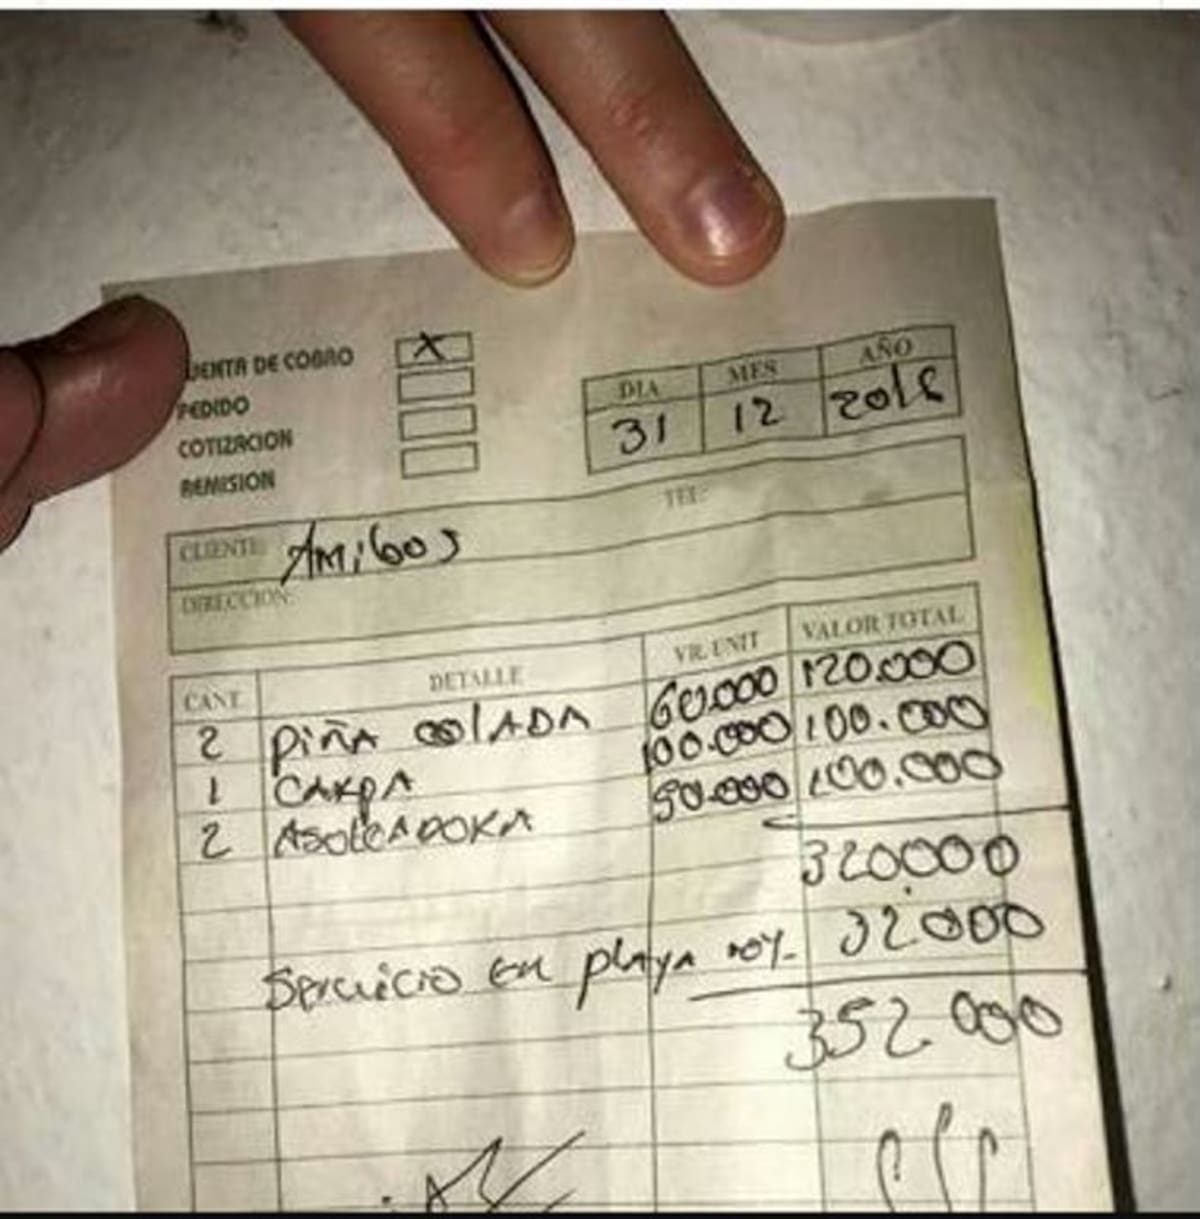 CUENTA DE COBRO X
PEDIDO
COTIZACION
REMISION
DIA MES AÑO
31 12 2018
CLIENTE: Amigos TEL:
DIRECCION:
CANT. DETALLE VR. UNIT VALOR TOTAL
2 PIÑA COLADA 60.000 120.000
1 CARPA 100.000 100.000
2 ASOLEADORA 50.000 100.000
320.000
Servicio en playa 10% 32.000
352.000